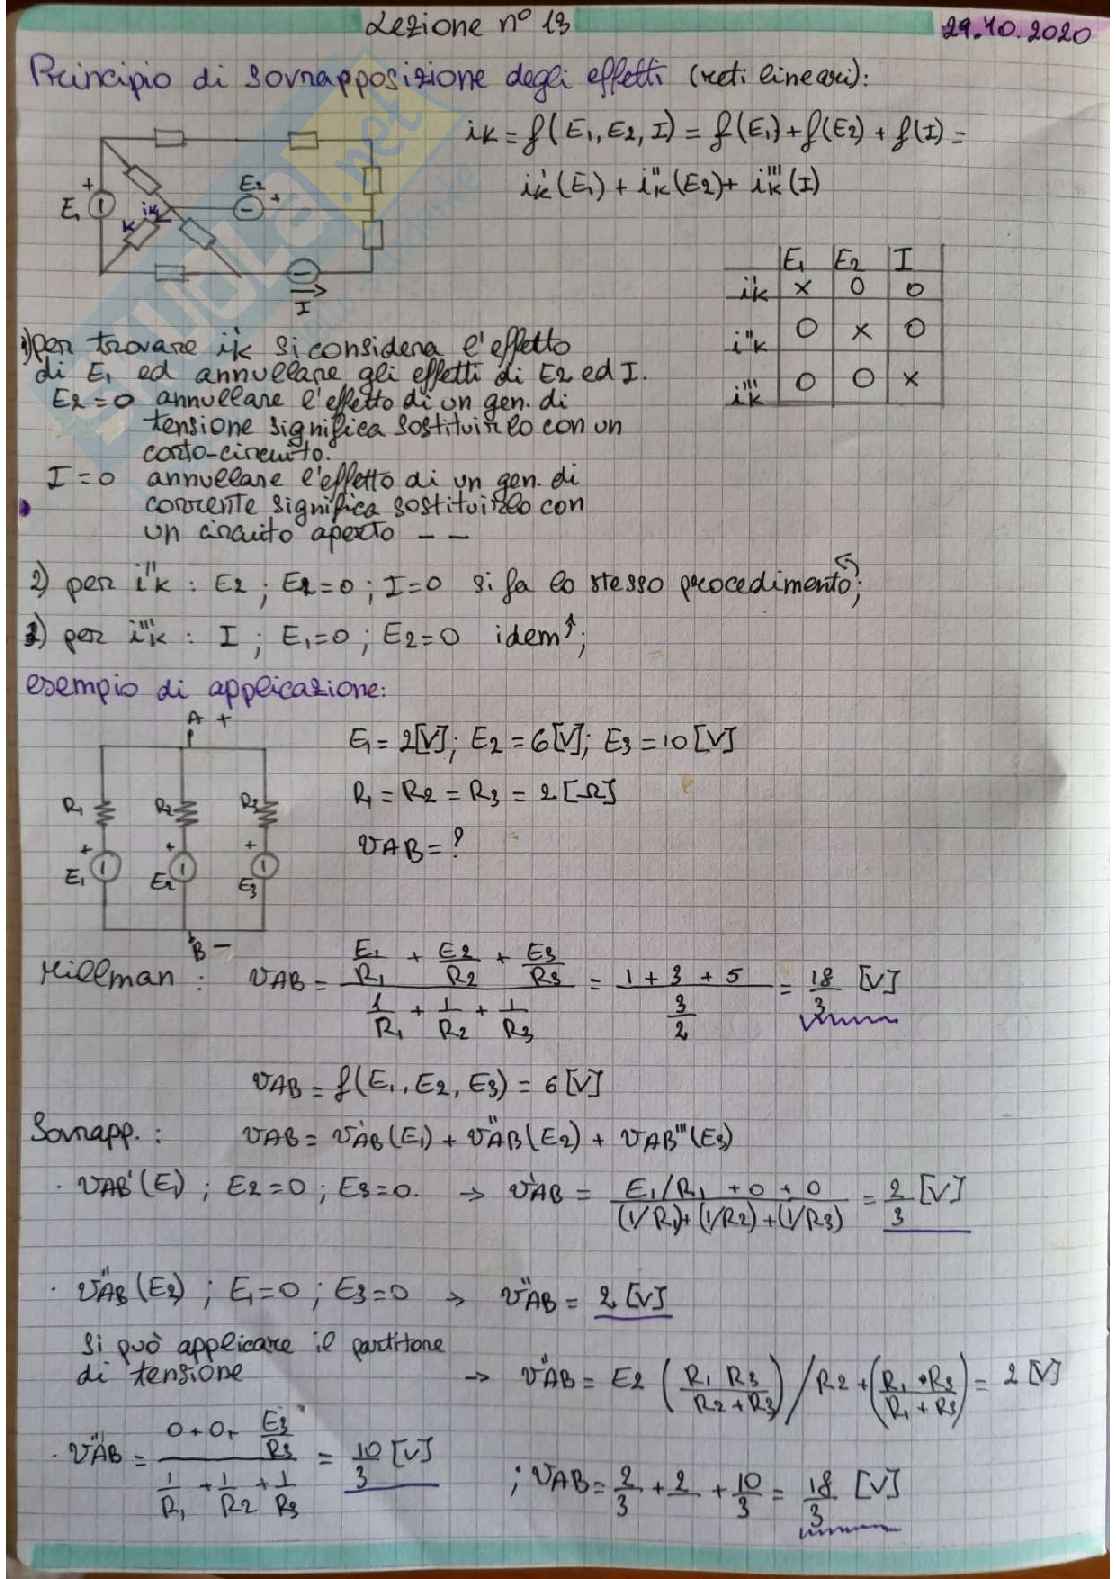 Lezione n° 13
29.10.2020
Principio di Sovrapposizione degli effetti (reti lineari):
iK = f(E1, E2, I) = f(E1) + f(E2) + f(I) =
i'K (E1) + i''K (E2) + i'''K (I)
E1 E2 I
i'K x 0 0
i''K 0 x 0
i'''K 0 0 x
+ E1 K iK E2 - + I
1) per trovare i'K si considera l'effetto
di E1 ed annullare gli effetti di E2 ed I.
E2 = 0 annullare l'effetto di un gen. di
tensione significa sostituirlo con un
corto-circuito.
I = 0 annullare l'effetto di un gen. di
corrente significa sostituirlo con
un circuito aperto - -
2) per i''K : E2 ; E1=0 ; I=0 si fa lo stesso procedimento;
3) per i'''K : I ; E1=0 ; E2=0 idem ↑;
esempio di applicazione:
A +
R1 R2 R3
+ + +
E1 E2 E3
B -
E1 = 2[V]; E2 = 6[V]; E3 = 10 [V]
R1 = R2 = R3 = 2 [Ω]
vAB = ?
Millman : vAB = (E1/R1 + E2/R2 + E3/R3) / (1/R1 + 1/R2 + 1/R3) = (1 + 3 + 5) / (3/2) = 18/3 [V]
vAB = f(E1, E2, E3) = 6 [V]
Sovrapp. : vAB = v'AB (E1) + v''AB (E2) + vAB''' (E3)
· vAB' (E1) ; E2=0 ; E3=0. → v'AB = (E1/R1 + 0 + 0) / ((1/R1)+(1/R2)+(1/R3)) = 2/3 [V]
· v''AB (E2) ; E1=0 ; E3=0 → v''AB = 2 [V]
Si può applicare il partitore
di tensione → v''AB = E2 (R1 R3 / R2+R3) / R2 + (R1 • R3 / R1 + R3) = 2 [V]
· v'''AB = (0 + 0 + E3/R3) / (1/R1 + 1/R2 + 1/R3) = 10/3 [V] ; vAB = 2/3 + 2 + 10/3 = 18/3 [V]